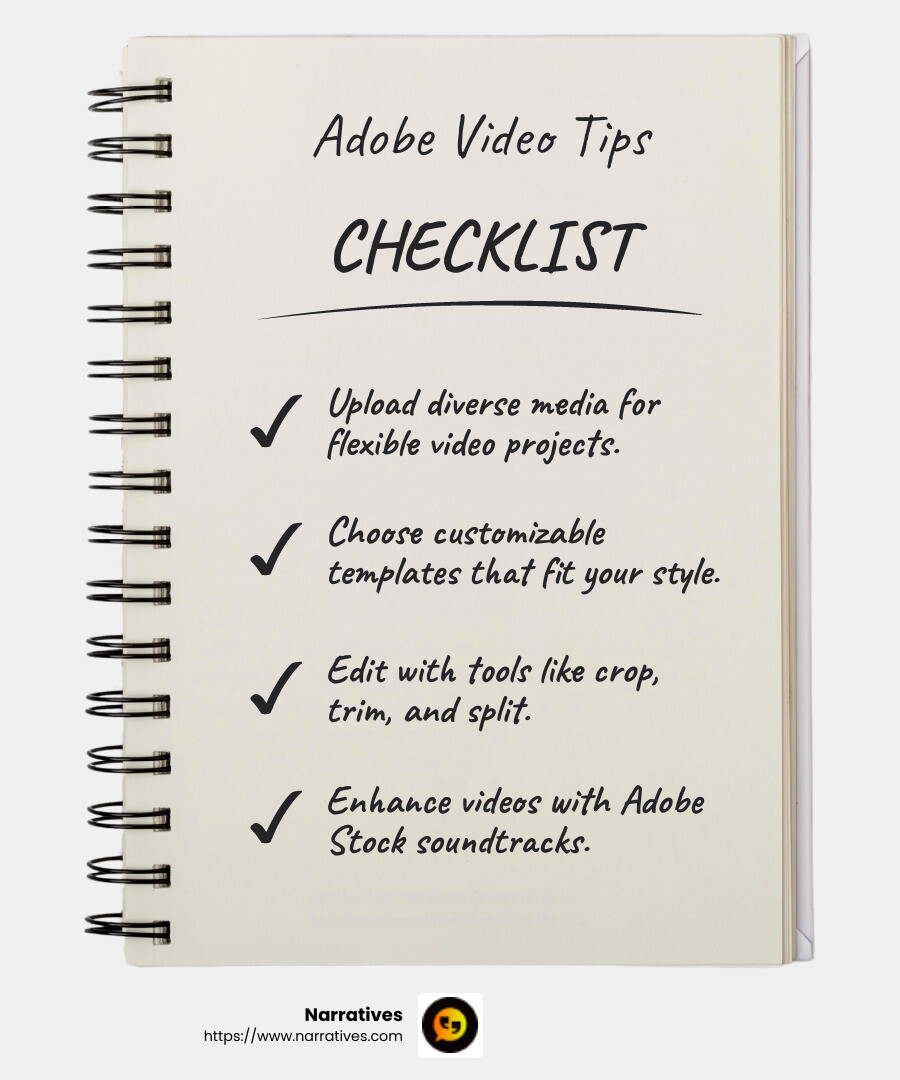 Adobe Video Tips
CHECKLIST
Upload diverse media for
flexible video projects.
Choose customizable
templates that fit your style.
Edit with tools like crop,
trim, and split.
Enhance videos with Adobe
Stock soundtracks.
Narratives
https://www.narratives.com